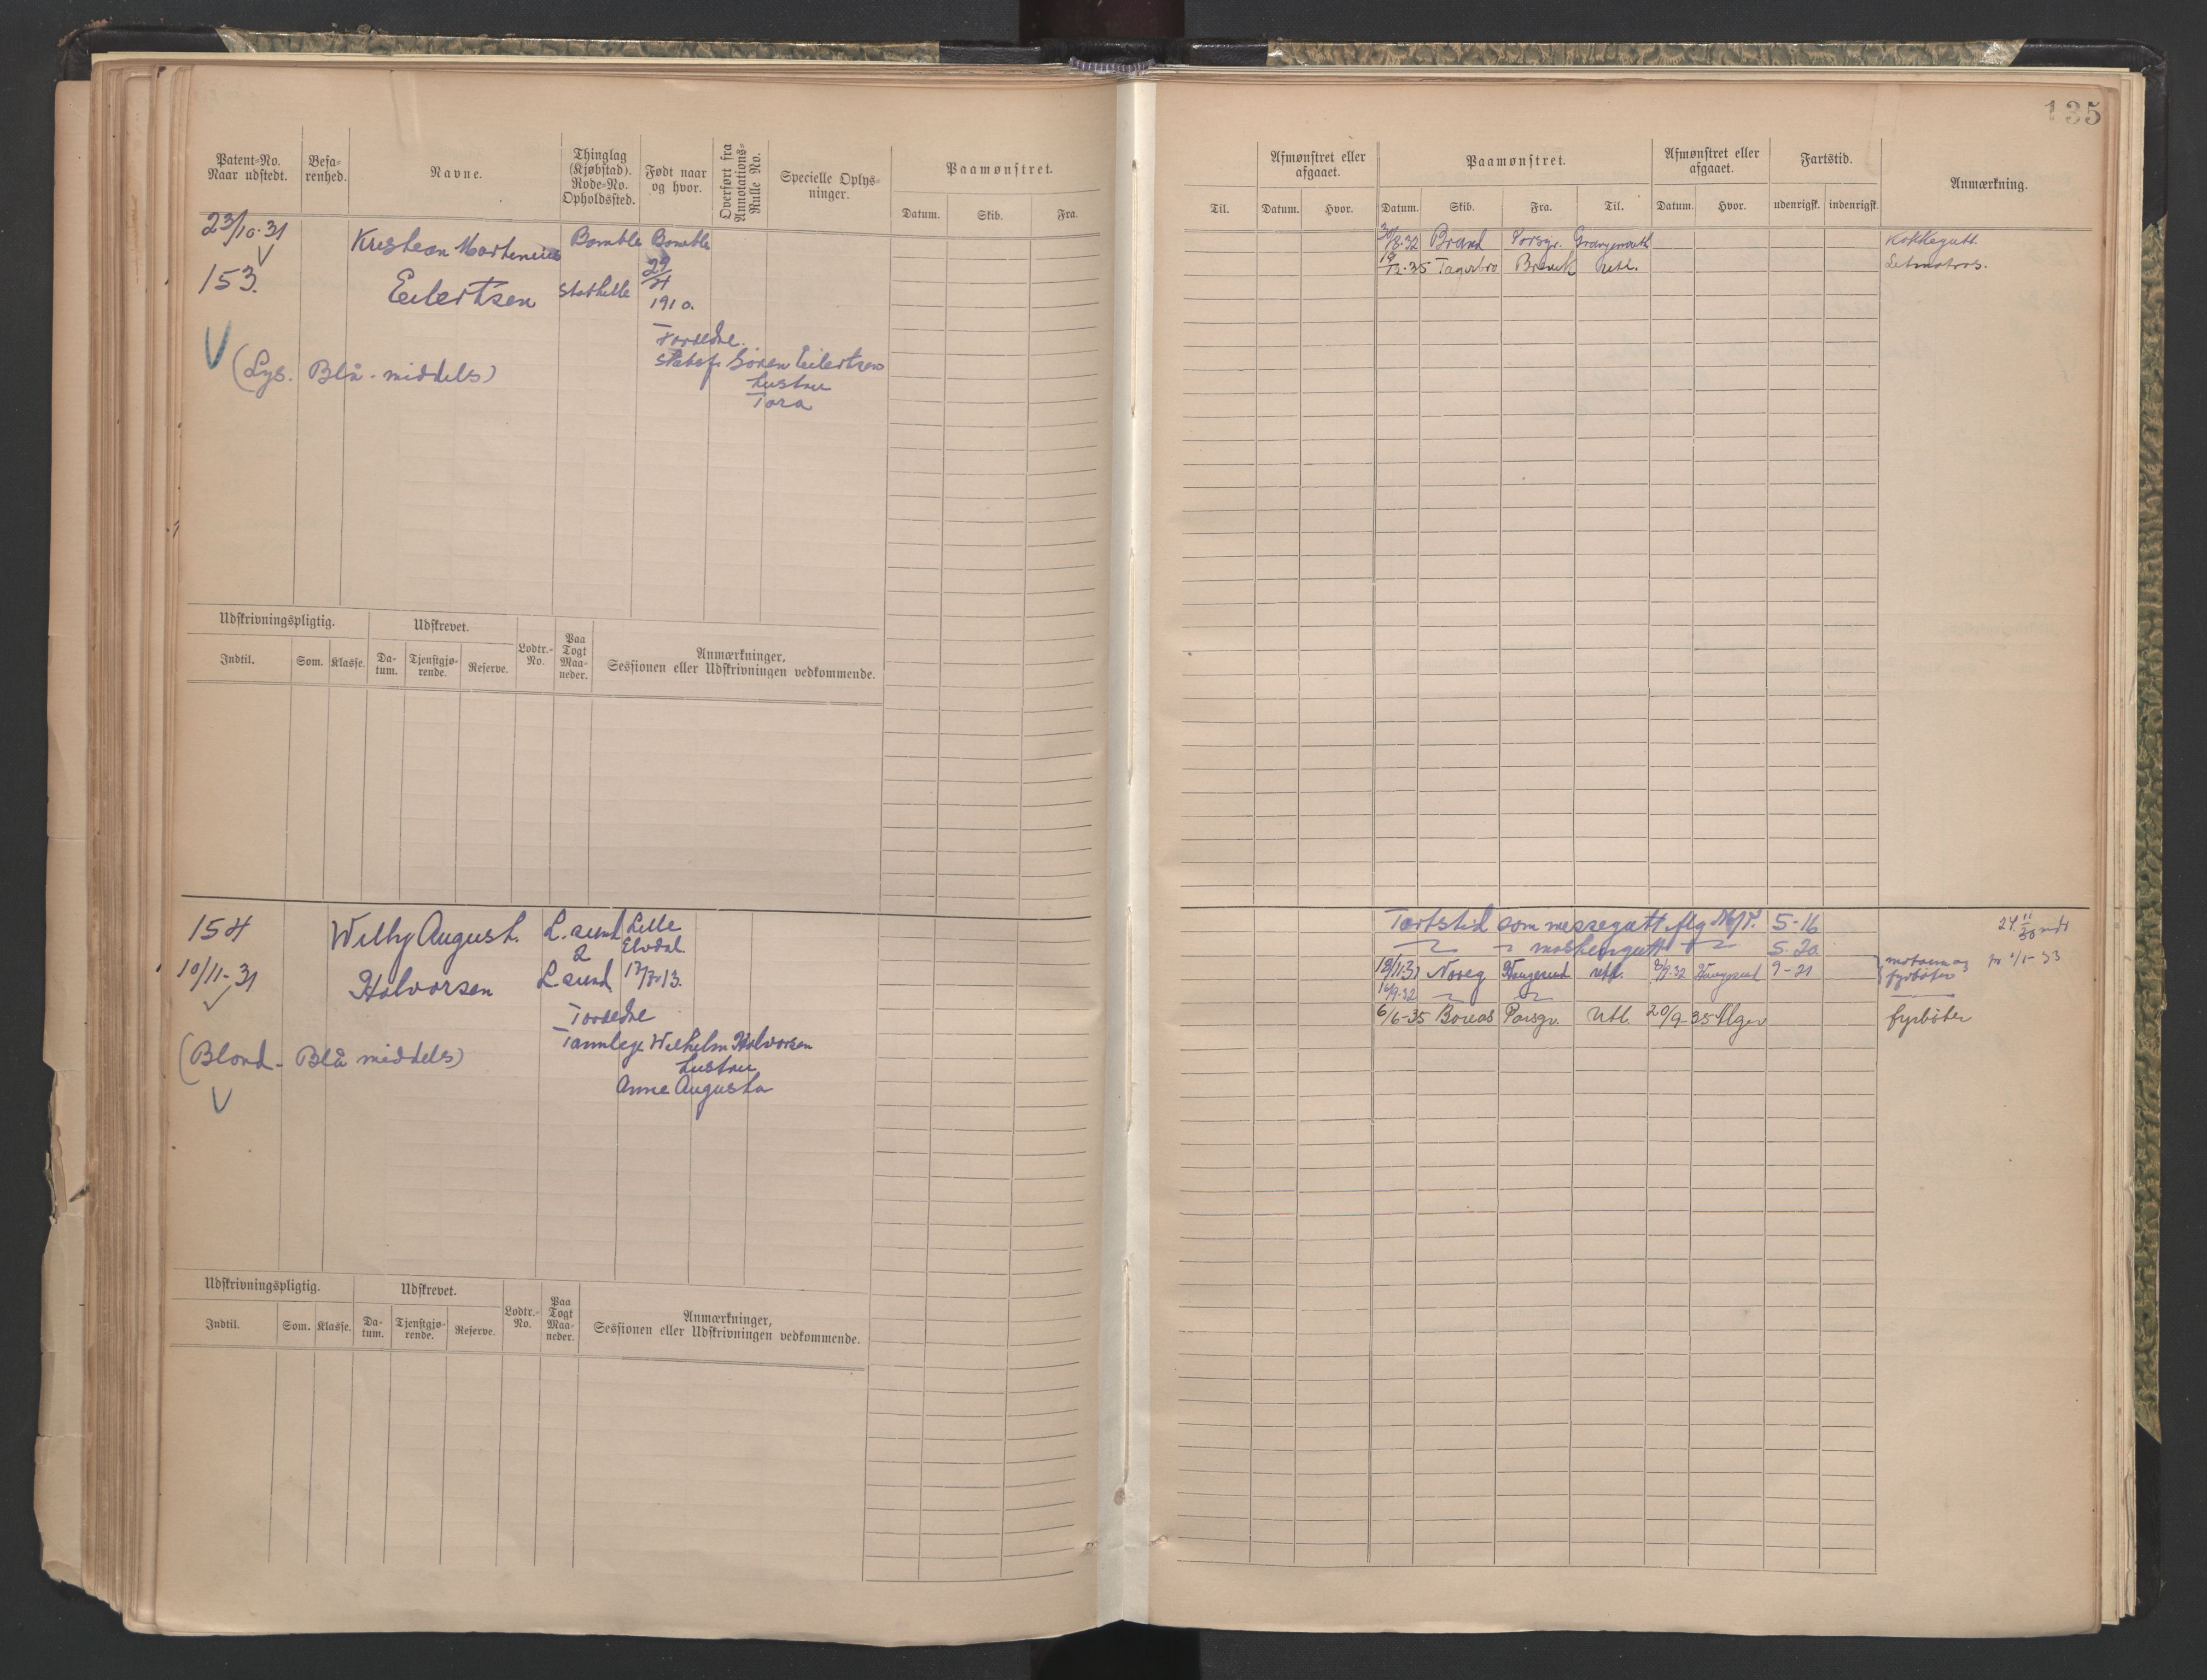 135
Patent-No. Naar udstedt.
Befa-renhed.
Navne.
Thinglag (Kjøbstad). Rode-No. Opholdssted.
Født naar og hvor.
Overført fra Annotations-Rulle No.
Specielle Oplys-ninger.
Paamønstret.
Datum. Skib. Fra.
Til.
Afmønstret eller afgaaet.
Datum. Hvor.
Paamønstret.
Datum. Skib. Fra. Til.
Afmønstret eller afgaaet.
Datum. Hvor.
Fartstid.
udenrigsk. indenrigsk.
Anmærkning.
23/10-31
153.
Kristian Martinius
Eilertsen
Bamble
Stathelle
Bamble
29/4
1910.
Foreldre.
Søren Eilertsen
hustru
Tora
(Lys. Blå - middels)
30/8-32 Brand Porsgr. Grangemouth Kokkegutt.
Brevik Utl. Letmatros.
Udskrivningspligtig.
Indtil. Som. Klasse.
Udskrevet.
Da-tum. Tjenstgjø-rende. Reserve.
Lodtr.-No.
Paa Togt Maa-neder.
Anmærkninger, Sessionen eller Udskrivningen vedkommende.
154
10/11-31
Willy August.
Halvorsen
L.sund
2
L.sund
Lille
Elvdal
17/7-13.
Foreldre
Tannlege Wilhelm Halvorsen
hustru
Anne Augusta
(Blond - Blå middels)
Fartstid som messegutt flg 5-16
maskingutt 5-20
18/11-31 Noreg Haugesund utl. Haugesund 9-21
16/9-32
fyrbøter
6/6-35 Boreas Porsgr. Utl. 20/9-35 Alger fyrbøter
Udskrivningspligtig.
Indtil. Som. Klasse.
Udskrevet.
Da-tum. Tjenstgjø-rende. Reserve.
Lodtr.-No.
Paa Togt Maa-neder.
Anmærkninger, Sessionen eller Udskrivningen vedkommende.